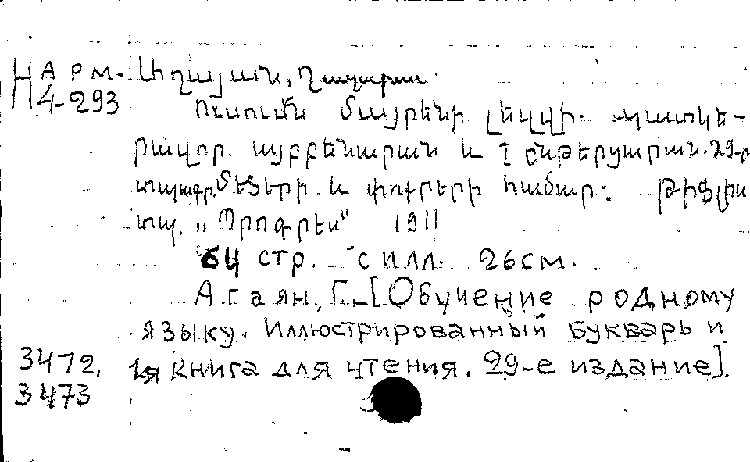 НАРМ. Աղայան, Ղազարոս
4-293
Ուսումն մայրենի լեզվի. պատկե-
րավոր այբբենարան և I ընթերցարան. 29-րդ
տպագր. մեծերի և փոքրերի համար: Թիֆլիս
տպ. „Պրոգրես“ 1911
64 стр. с илл. 26см.
Агаян, Г. [Обучение родному
языку. Иллюстрированный букварь и
3472, 1я книга для чтения. 29-е издание].
3473